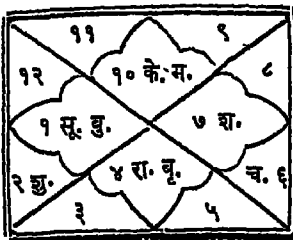 ११ ९
१२ १० के. म. ८
१ सू. बु. ७ श.
२ शु. ४ रा. बृ. च. ६
३ ५